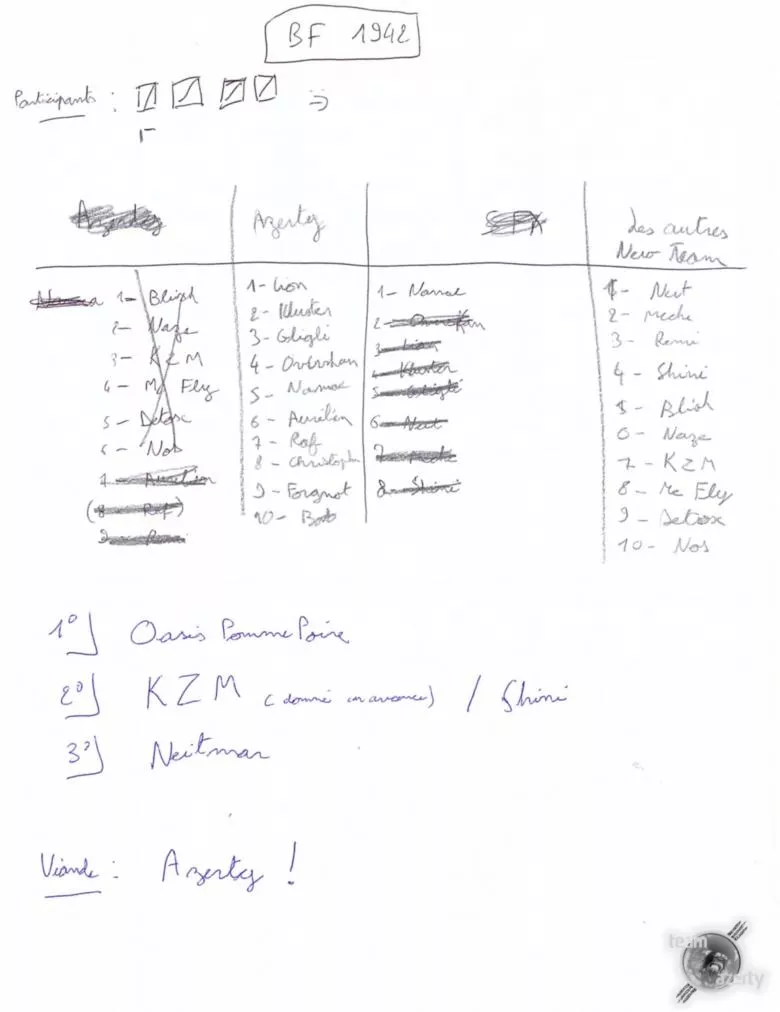 BF 1942
Participants :
Azerty
Azerty
SFX
Les autres
New Team
1- Blish
2- Naze
3- KZM
4- Mc Fly
5- Detox
6- Nos
7- Aurélien
(8- Raf)
9- Remi
1- Lion
2- Kluster
3- Gligli
4- Overshan
5- Namac
6- Aurélien
7- Raf
8- Christophe
9- Forgnot
10- Bob
1- Namac
2-
3- Lion
4- Kluster
5- Gligli
6- Neit
7- Meche
8- Shini
1- Neit
2- Meche
3- Remi
4- Shini
5- Blish
6- Naze
7- KZM
8- Mc Fly
9- Detox
10- Nos
1°) Oasis Pomme Poire
2°) KZM (donné en avance) / Shini
3°) Neitman
Viande : Azerty !
team
azerty